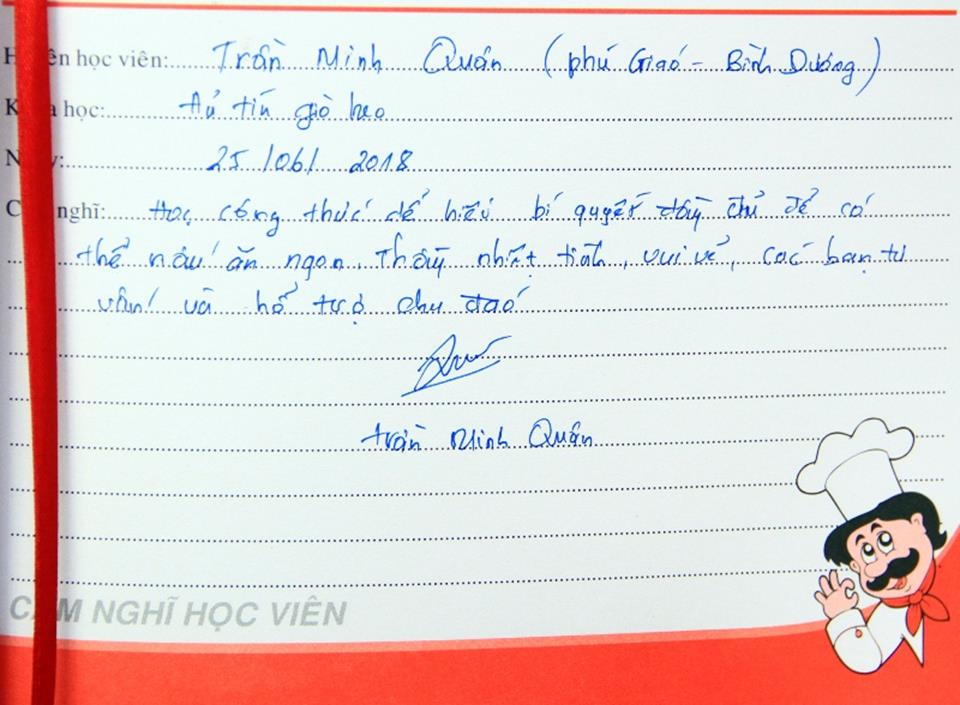 H ên học viên: Trần Minh Quân (phú Giaó - Bình Dương)
K a học: Hủ tíu giò heo
N y: 25/06/ 2018
C nghĩ: Học công thức để hiểu bí quyết đầy đủ để có
thể nấu ăn ngon. Thầy nhiệt tình, vui vẻ, các bạn tư
vấn và hổ trợ chu đaó
trần Minh Quân
C M NGHĨ HỌC VIÊN